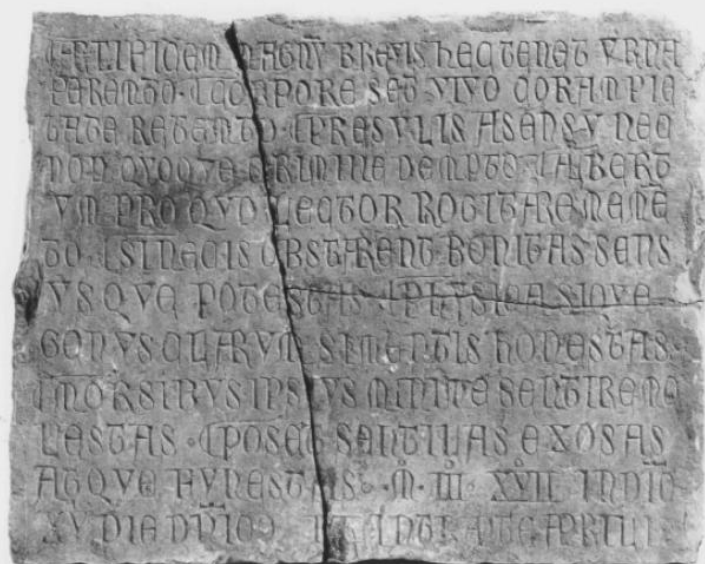 MAGNV BREVIS HEC TENET VRNA
PARENTO · CORPORE SET VIVO CORAM PIE
TATE RETENTO PRESVLIS ASENSV NEC
NON CRIMINE DEMPTO ALBERT
VM PRO QVO LECTOR ROGITARE MEME
TO SI NECIS OBSTARENT BONITAS SENS
VSQVE POTESTAS PHISICA SI QVE
GENVS CLARVM SI MENTIS HONESTAS
MORSIBVS IPSIVS MINIME SENTIRE MO
LESTAS · POSET EXOSAS
ATQVE FVNESTAS · M · III · XVII INDIC
XV DIE DNICO INTRANTE APRILI